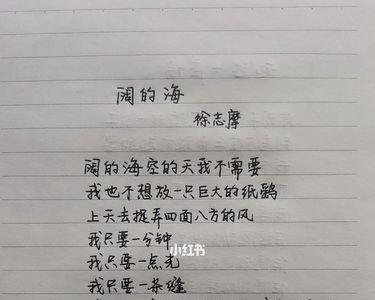 阔的海
徐志摩
阔的海空的天我不需要
我也不想放一只巨大的纸鹞
上天去捉弄四面八方的风
我只要一分钟
小红书
我只要一点光
我只要一条缝